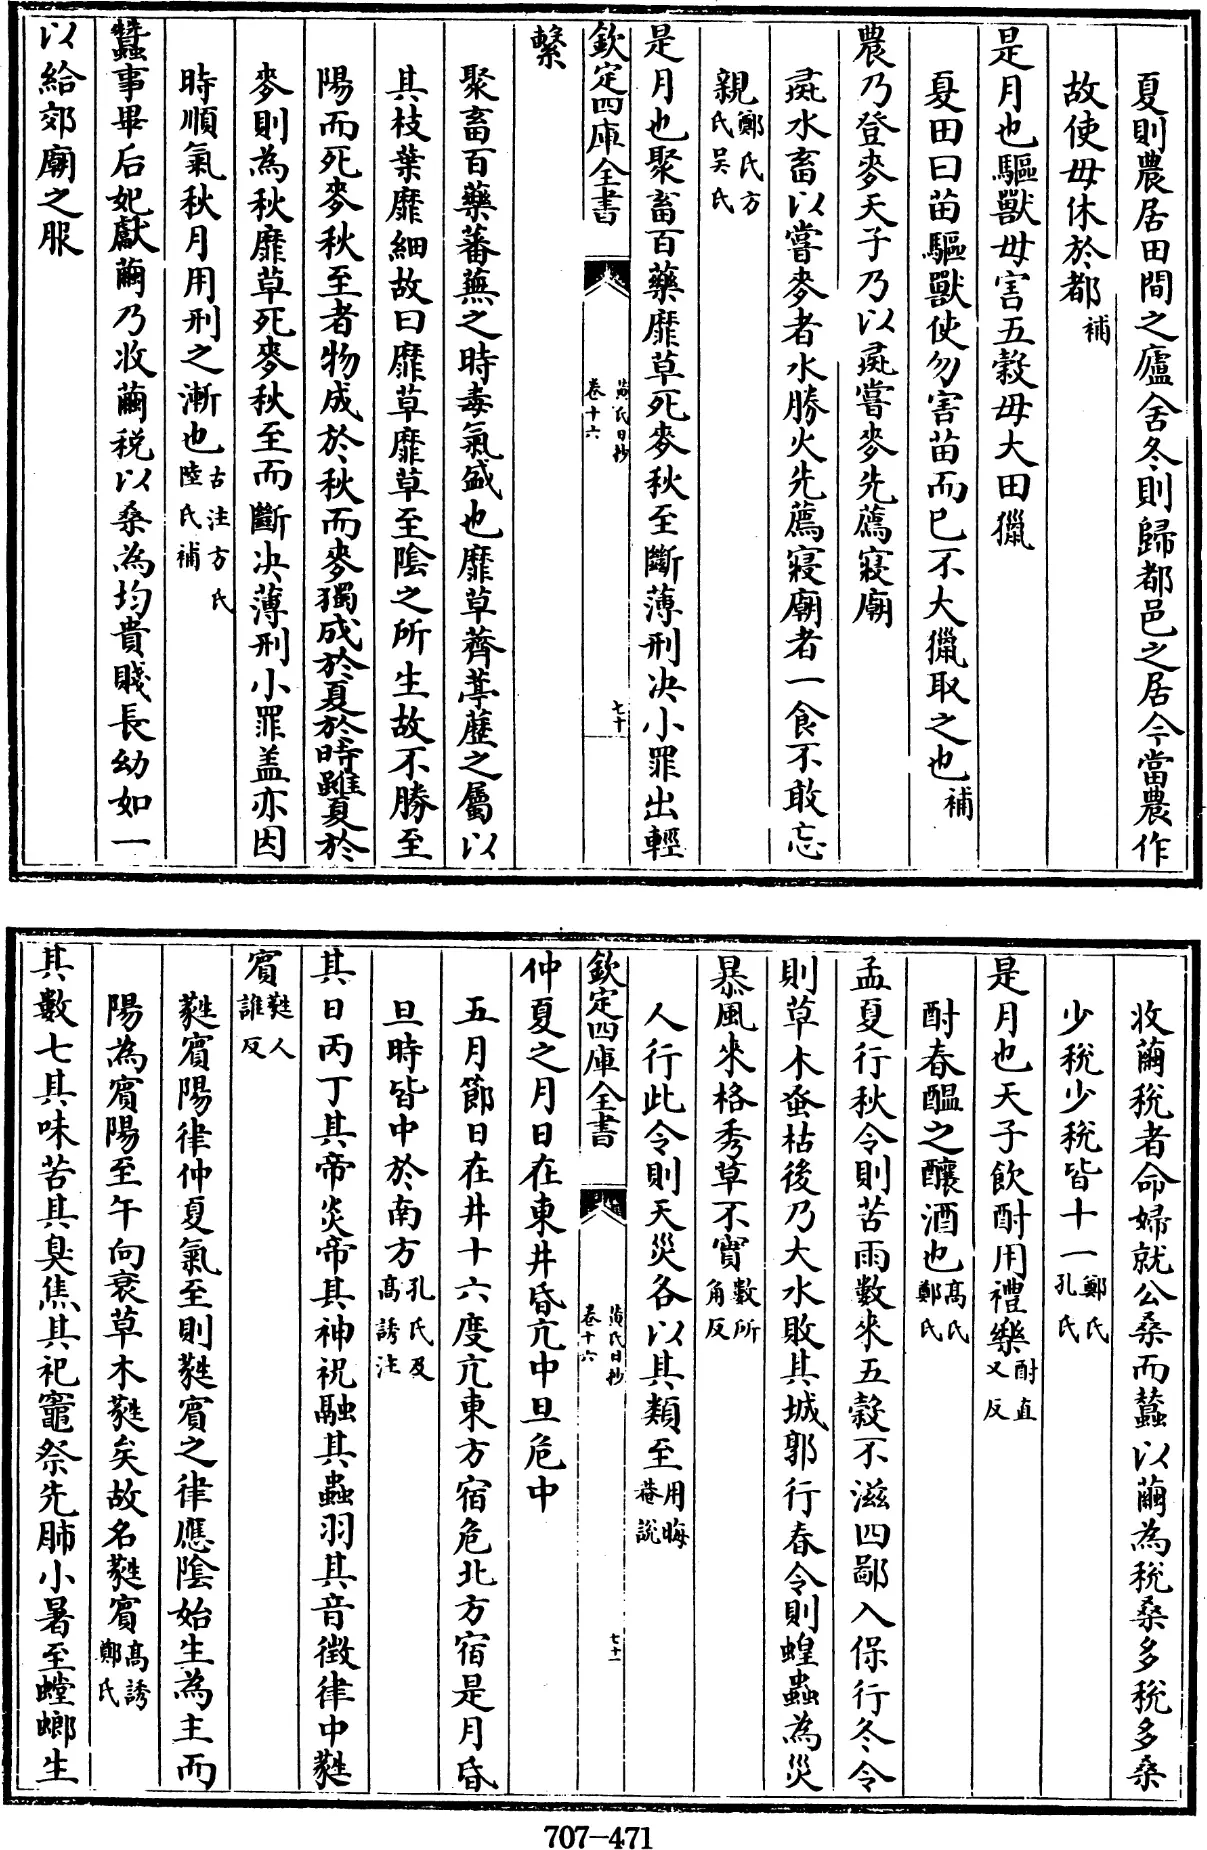 夏則農居田間之廬舍冬則歸都邑之居今當農作
故使毋休於都補
是月也驅獸毋害五穀毋大田獵
夏田曰苗驅獸使勿害苗而已不大獵取之也補
農乃登麥天子乃以彘嘗麥先薦寢廟
彘水畜以嘗麥者水勝火先薦寢廟者一食不敢忘
親鄭氏方氏吳氏
是月也聚畜百藥靡草死麥秋至斷薄刑决小罪出輕
欽定四庫全書 黄氏日抄 卷十六 七十
繫
聚畜百藥蕃蕪之時毒氣盛也靡草薺葶藶之屬以
其枝葉靡細故曰靡草靡草至陰之所生故不勝至
陽而死麥秋至者物成於秋而麥獨成於夏於時雖夏於
麥則為秋靡草死麥秋至而斷决薄刑小罪盖亦因
時順氣秋月用刑之漸也古注方氏陸氏補
蠶事畢后妃獻繭乃收繭税以桑為均貴賤長幼如一
以給郊廟之服
收繭税者命婦就公桑而蠶以繭為税桑多税多桑
少税少税皆十一鄭氏孔氏
是月也天子飲酎用禮樂酎直又反
酎春醖之釀酒也髙氏鄭氏
孟夏行秋令則苦雨數來五穀不滋四鄙入保行冬令
則草木蚤枯後乃大水敗其城郭行春令則蝗蟲為災
暴風來格秀草不實數所角反
人行此令則天災各以其類至用晦菴說
欽定四庫全書 黄氏日抄 卷十六 七十一
仲夏之月日在東井昏亢中旦危中
五月節日在井十六度亢東方宿危北方宿是月昏
旦時皆中於南方孔氏及髙誘注
其日丙丁其帝炎帝其神祝融其蟲羽其音徵律中蕤
賓蕤人誰反
蕤賓陽律仲夏氣至則蕤賓之律應陰始生為主而
陽為賓陽至午向衰草木蕤矣故名蕤賓髙誘鄭氏
其數七其味苦其臭焦其祀竈祭先肺小暑至螳螂生
707-471